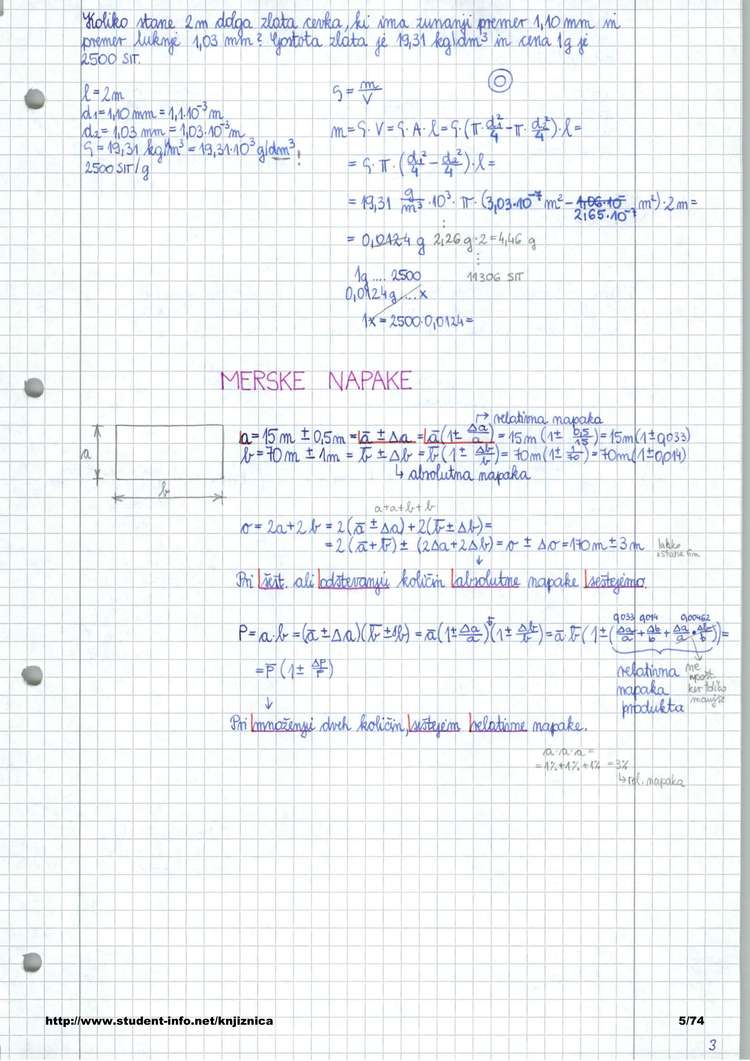 Koliko stane 2m dolga zlata cevka, ki ima zunanji premer 1,10 mm in
premer luknje 1,03 mm? Gostota zlata je 19,31 kg/dm³ in cena 1g je
2500 SIT.
l = 2m
d₁ = 1,10 mm = 1,1·10⁻³ m
d₂ = 1,03 mm = 1,03·10⁻³ m
ρ = 19,31 kg/dm³ = 19,31·10³ g/dm³ !
2500 SIT/g
ρ = m/V
m = ρ·V = ρ·A·l = ρ·(π·d₁²/4 - π·d₂²/4)·l =
= ρ·π·(d₁²/4 - d₂²/4)·l =
= 19,31 g/m³ ·10³·π·(3,03·10⁻⁷ m² - 1,06·10⁻ m²)·2m =
2,65·10⁻⁷
= 0,0124 g 2,26 g·2 = 4,46 g
1g .... 2500 11306 SIT
0,0124g ....x
1x = 2500·0,0124 =
MERSKE NAPAKE
relativna napaka
a = 15m ± 0,5m = a̅ ± Δa = a̅(1 ± Δa/a) = 15m(1 ± 0,5/15) = 15m(1 ± 0,033)
b = 70m ± 1m = b̅ ± Δb = b̅(1 ± Δb/b) = 70m(1 ± 1/70) = 70m(1 ± 0,014)
a
↳ absolutna napaka
b
a+a+b+b
o = 2a + 2b = 2(a̅ ± Δa) + 2(b̅ ± Δb) =
= 2(a̅ + b̅) ± (2Δa + 2Δb) = o ± Δo = 170m ± 3m
↓
Pri sešt. ali odštevanju količin absolutne napake seštejemo.
0,033 0,014 0,00462
P = a·b = (a̅ ± Δa)(b̅ ± Δb) = a̅(1 ± Δa/a) b̅(1 ± Δb/b) = a̅ b̅(1 ± (Δa/a + Δb/b + Δa/a · Δb/b)) =
= P̅(1 ± ΔP/P)
relativna
napaka
produkta
↓
Pri množenju dveh količin, seštejem relativne napake.
a·a·a =
= 1% + 1% + 1% = 3%
↳ rel. napaka
http://www.student-info.net/knjiznica 5/74
3